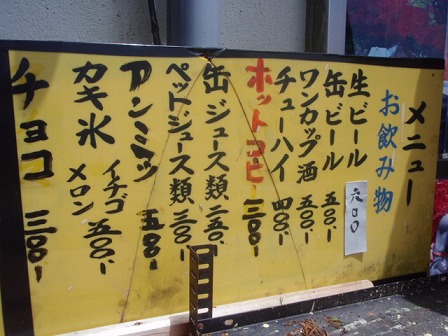 メニュー
お飲み物
生ビール 六〇〇
缶ビール 五〇〇.-
ワンカップ酒 五〇〇.-
チューハイ 四〇〇.-
ホットコーヒー 三〇〇-
缶ジュース類 二五〇.-
ペットジュース類 三〇〇.-
アンミツ 五〇〇-
カキ氷 イチゴ メロン 五〇〇.-
チョコ 三〇〇-